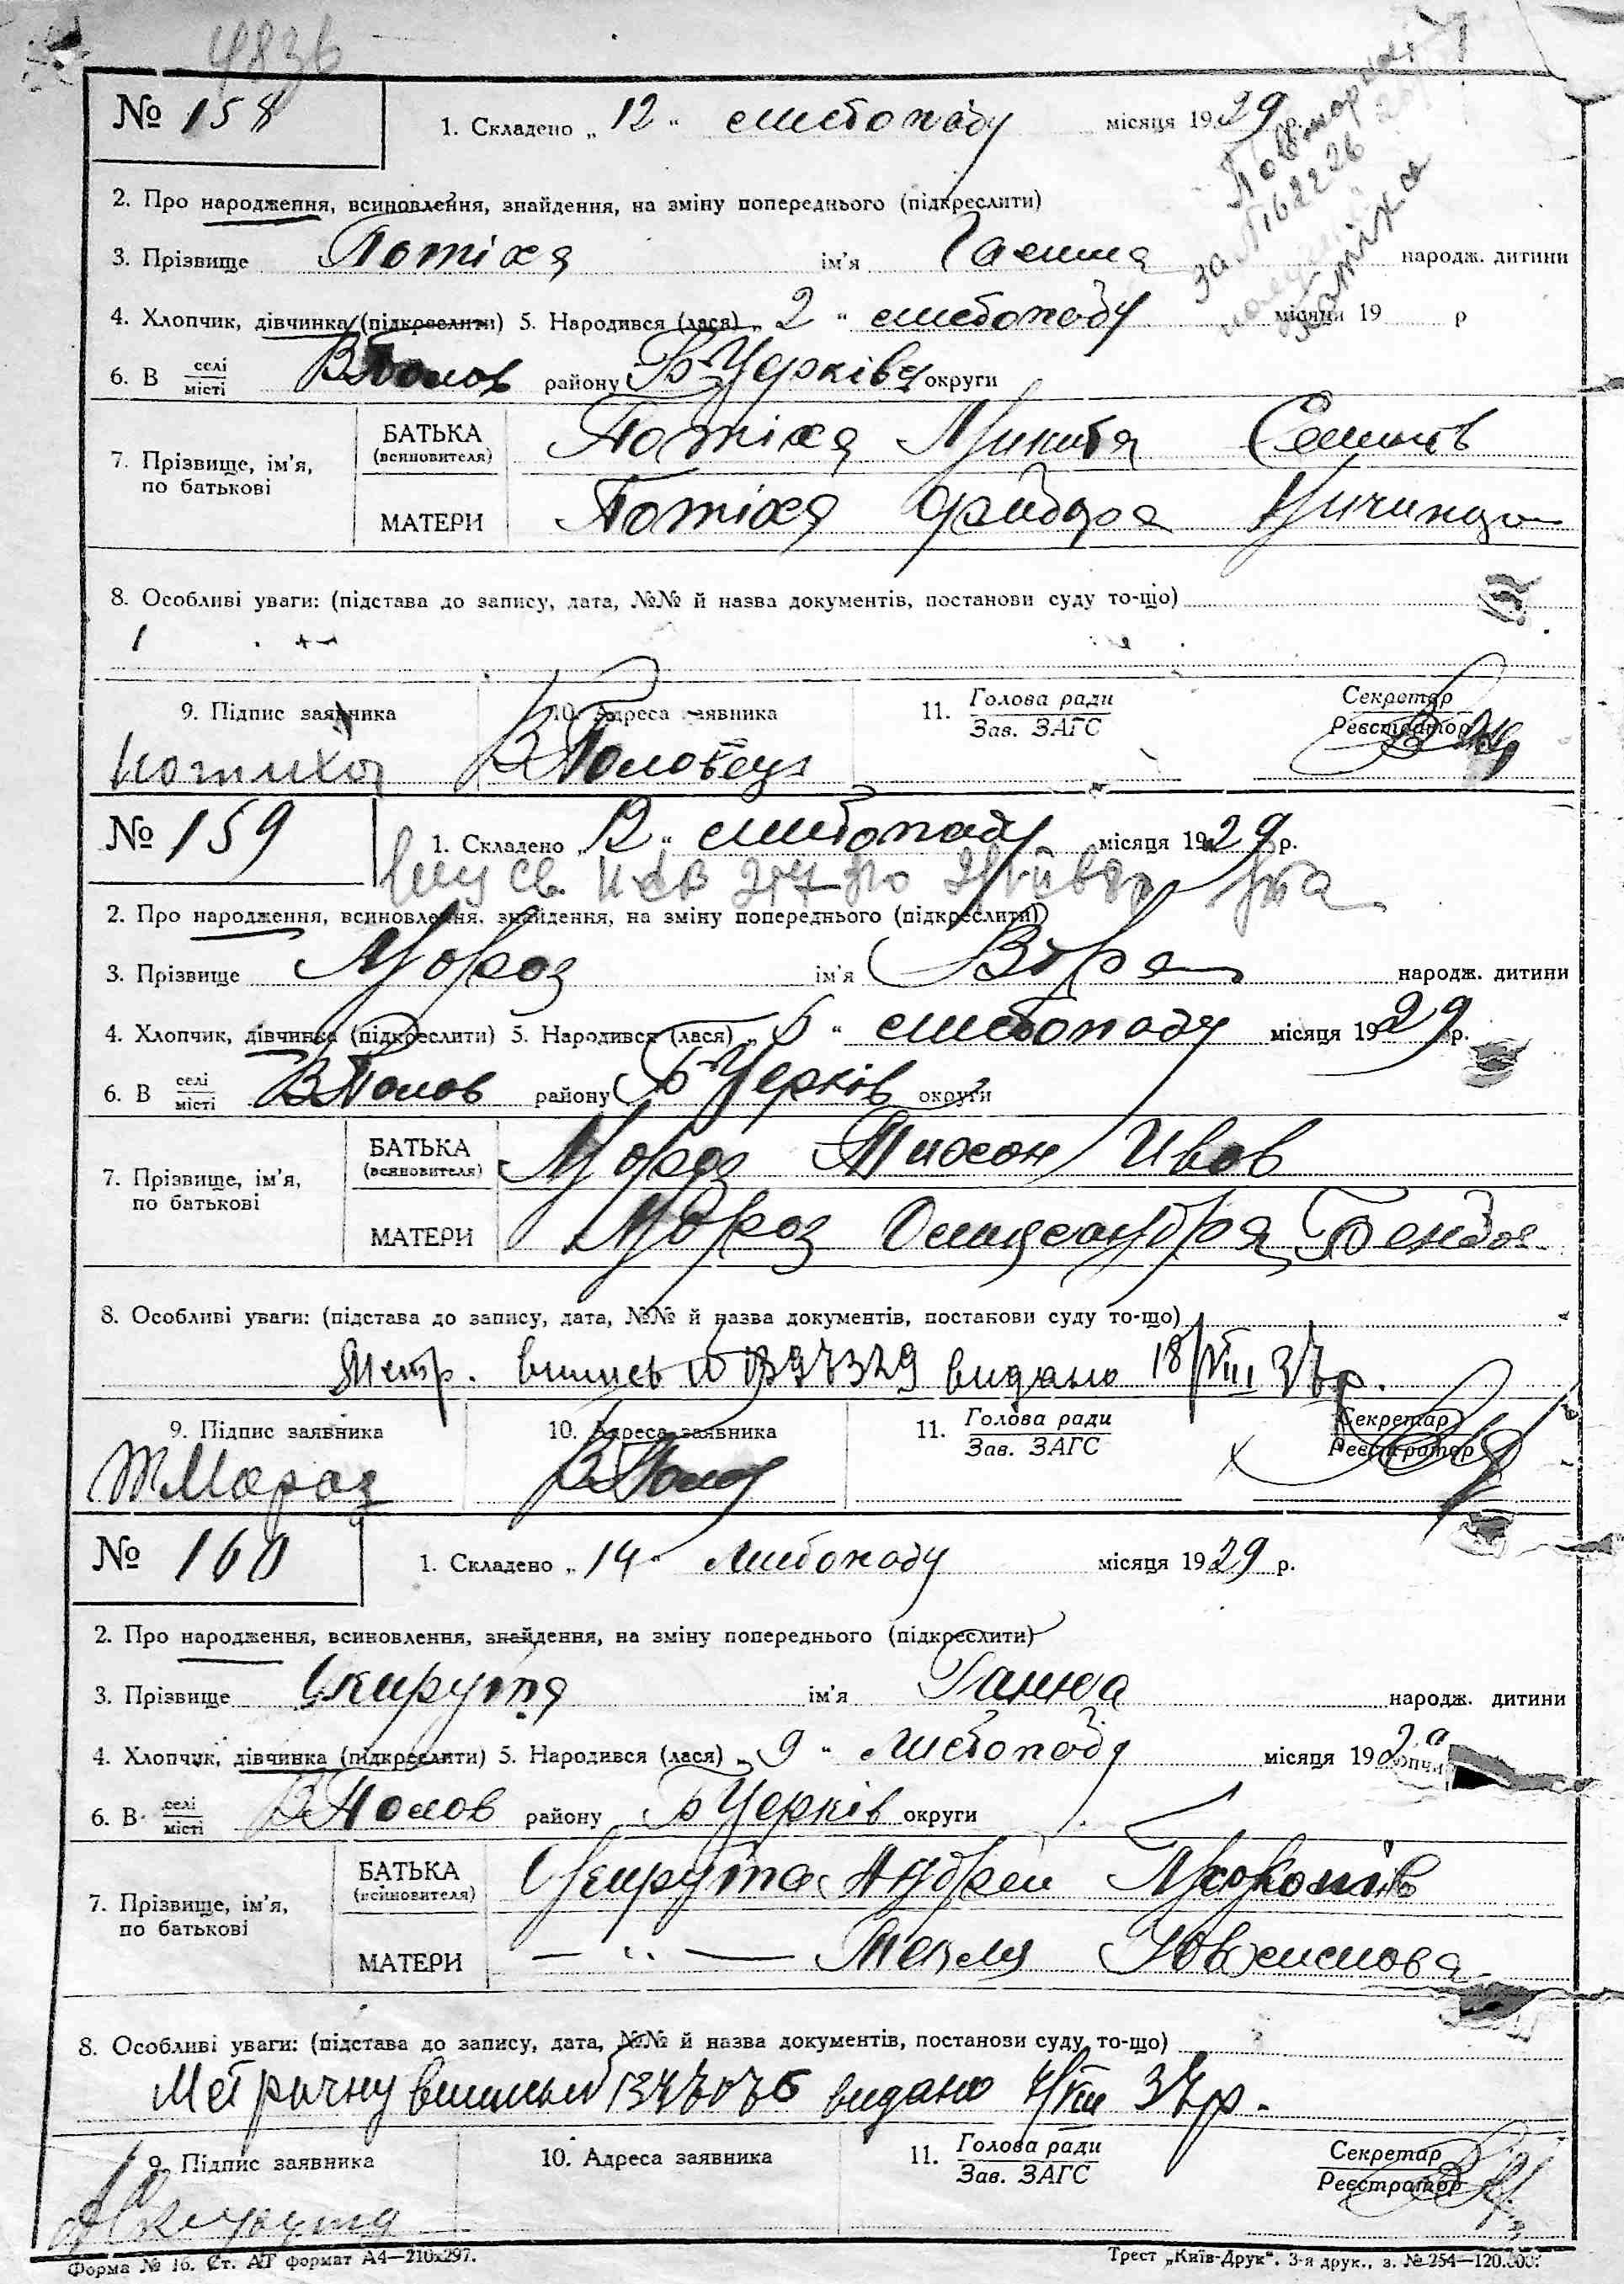 4836
№ 158
1. Складено „ 12 “ листопаду місяця 1929 р.
Повторний
за №162226
Потіха
2. Про народження, всиновлення, знайдення, на зміну попереднього (підкреслити)
3. Прізвище Потіха ім'я Галина народж. дитини
4. Хлопчик, дівчинка (підкреслити) 5. Народився (лася) „ 2 “ листопаду місяця 19 р
6. В селі/місті В Полов району Б Церківц округи
7. Прізвище, ім'я, по батькові
БАТЬКА (всиновителя) Потіха Микита Семенів
МАТЕРИ Потіха
8. Особливі уваги: (підстава до запису, дата, №№ й назва документів, постанови суду то-що)
9. Підпис заявника 10. Адреса заявника 11. Голова ради/Зав. ЗАГС Секретар/Реєстратор
Потиха В Половецз
№ 159
1. Складено „ 12 “ листопаду місяця 1929 р.
2. Про народження, всиновлення, знайдення, на зміну попереднього (підкреслити)
3. Прізвище Мороз ім'я Віра народж. дитини
4. Хлопчик, дівчинка (підкреслити) 5. Народився (лася) „ 5 “ листопаду місяця 1929 р.
6. В селі/місті В Полов району Б Церків округи
7. Прізвище, ім'я, по батькові
БАТЬКА (всиновителя) Мороз Тихон Ивов
МАТЕРИ Мороз Олександра
8. Особливі уваги: (підстава до запису, дата, №№ й назва документів, постанови суду то-що)
Метр. випись видано 18/VIII 37 р.
9. Підпис заявника 10. Адреса заявника 11. Голова ради/Зав. ЗАГС Секретар/Реєстратор
Т Мороз В Полов
№ 160
1. Складено „ 14 “ листопаду місяця 1929 р.
2. Про народження, всиновлення, знайдення, на зміну попереднього (підкреслити)
3. Прізвище Скирута ім'я Ганна народж. дитини
4. Хлопчик, дівчинка (підкреслити) 5. Народився (лася) „ 9 “ листопаду місяця 19
6. В селі/місті В Полов району Б Церків округи
7. Прізвище, ім'я, по батькові
БАТЬКА (всиновителя) Скирута Андрей Прокопів
МАТЕРИ — „ — Текля
8. Особливі уваги: (підстава до запису, дата, №№ й назва документів, постанови суду то-що)
Метричну випись видано 4/VIII 37 р.
9. Підпис заявника 10. Адреса заявника 11. Голова ради/Зав. ЗАГС Секретар/Реєстратор
А Скирута
Форма № 16. Ст. АТ формат А4—210х297. Трест „Київ-Друк“, 3-я друк., з. № 254—120.000.